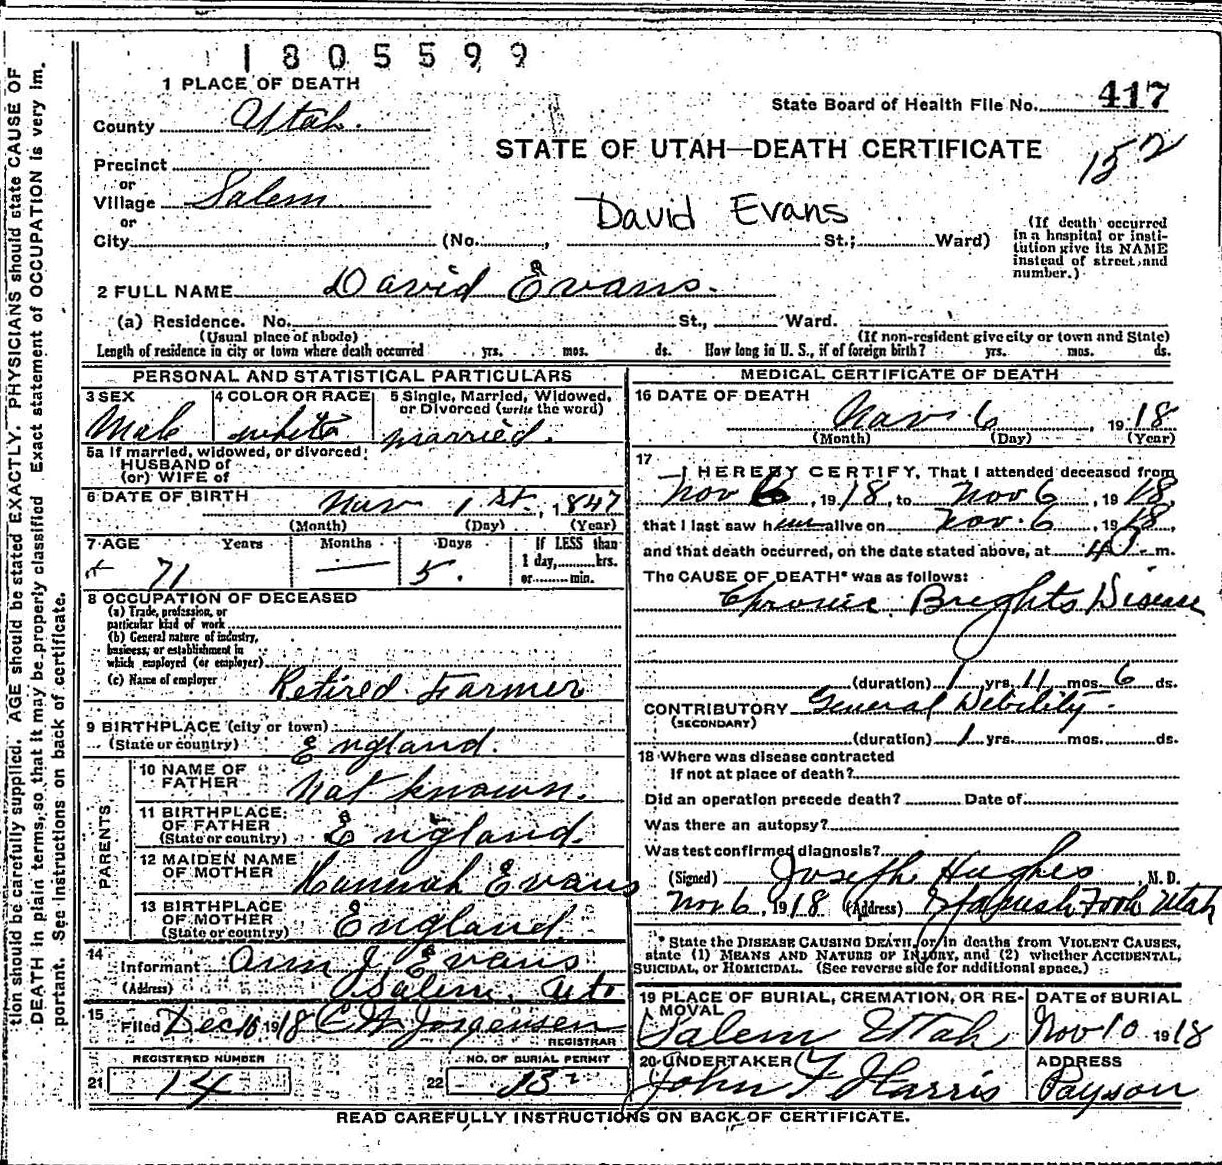 1805599
1 PLACE OF DEATH
State Board of Health File No. 417
County Utah.
STATE OF UTAH—DEATH CERTIFICATE
152
Precinct
or
Village Salem
or
David Evans
City (No. , St.; Ward)
(If death occurred in a hospital or institution give its NAME instead of street and number.)
2 FULL NAME David Evans.
(a) Residence. No. St., Ward.
(Usual place of abode) (If non-resident give city or town and State)
Length of residence in city or town where death occurred yrs. mos. ds. How long in U. S., if of foreign birth? yrs. mos. ds.
PERSONAL AND STATISTICAL PARTICULARS
3 SEX
Male
4 COLOR OR RACE
white
5 Single, Married, Widowed, or Divorced (write the word)
married.
5a If married, widowed, or divorced:
HUSBAND of
(or) WIFE of
6 DATE OF BIRTH
Nov 1st, 1847
(Month) (Day) (Year)
7 AGE Years Months Days
71 — 5.
If LESS than
1 day, hrs.
or min.
8 OCCUPATION OF DECEASED
(a) Trade, profession, or
particular kind of work
(b) General nature of industry,
business, or establishment in
which employed (or employer)
(c) Name of employer
Retired Farmer
9 BIRTHPLACE (city or town)
(State or country) England.
PARENTS
10 NAME OF
FATHER Not known.
11 BIRTHPLACE
OF FATHER
(State or country) England.
12 MAIDEN NAME
OF MOTHER Hannah Evans
13 BIRTHPLACE
OF MOTHER
(State or country) England.
14
Informant Ann J. Evans
(Address) Salem,
15
Filed Dec 10 1918 C W Jorgensen
REGISTRAR
REGISTERED NUMBER NO. OF BURIAL PERMIT
21 14 22
MEDICAL CERTIFICATE OF DEATH
16 DATE OF DEATH
Nov 6, 1918
(Month) (Day) (Year)
17
I HEREBY CERTIFY, That I attended deceased from
Nov 6, 1918, to Nov 6, 1918,
that I last saw him alive on Nov. 6, 1918,
and that death occurred, on the date stated above, at m.
The CAUSE OF DEATH* was as follows:
Chronic Brights Disease
(duration) 1 yrs. 11 mos. 6 ds.
CONTRIBUTORY General Debility.
(SECONDARY)
(duration) 1 yrs. mos. ds.
18 Where was disease contracted
If not at place of death?
Did an operation precede death? Date of
Was there an autopsy?
Was test confirmed diagnosis?
(Signed) Joseph Hughes, M. D.
Nov 6, 1918 (Address) Spanish Fork Utah
* State the DISEASE CAUSING DEATH, or in deaths from VIOLENT CAUSES,
state (1) MEANS AND NATURE OF INJURY, and (2) whether ACCIDENTAL,
SUICIDAL, or HOMICIDAL. (See reverse side for additional space.)
19 PLACE OF BURIAL, CREMATION, OR REMOVAL
Salem Utah
DATE of BURIAL
Nov 10 1918
20 UNDERTAKER
John F Harris
ADDRESS
Payson
READ CAREFULLY INSTRUCTIONS ON BACK OF CERTIFICATE.
tion should be carefully supplied. AGE should be stated EXACTLY. PHYSICIANS should state CAUSE OF
DEATH in plain terms, so that it may be properly classified. Exact statement of OCCUPATION is very im-
portant. See instructions on back of certificate.